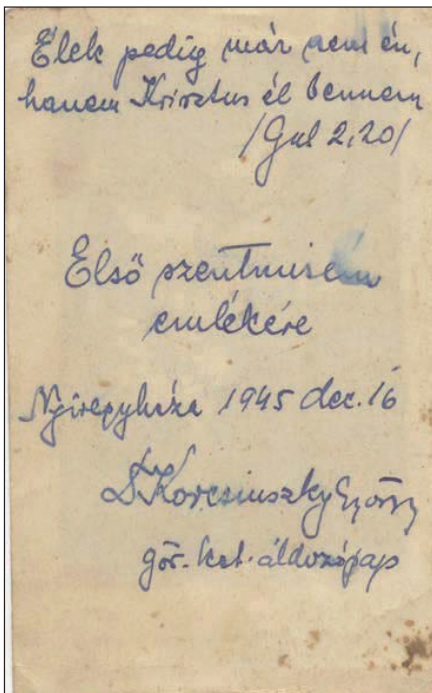 Élek pedig már nem én,
hanem Krisztus él bennem
/Gal 2,20/
Első szentmisém
emlékére
Nyíregyháza 1945 dec. 16
György
gör. kat. áldozópap